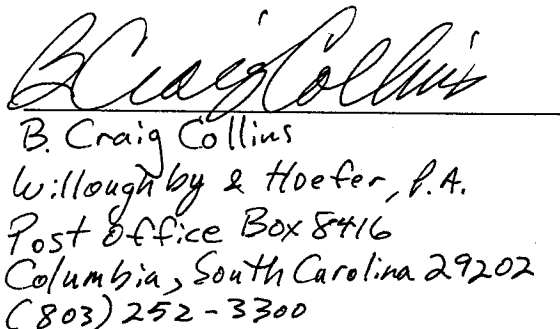 B Craig Collins
B. Craig Collins
Willoughby & Hoefer, P.A.
Post Office Box 8416
Columbia, South Carolina 29202
(803) 252-3300